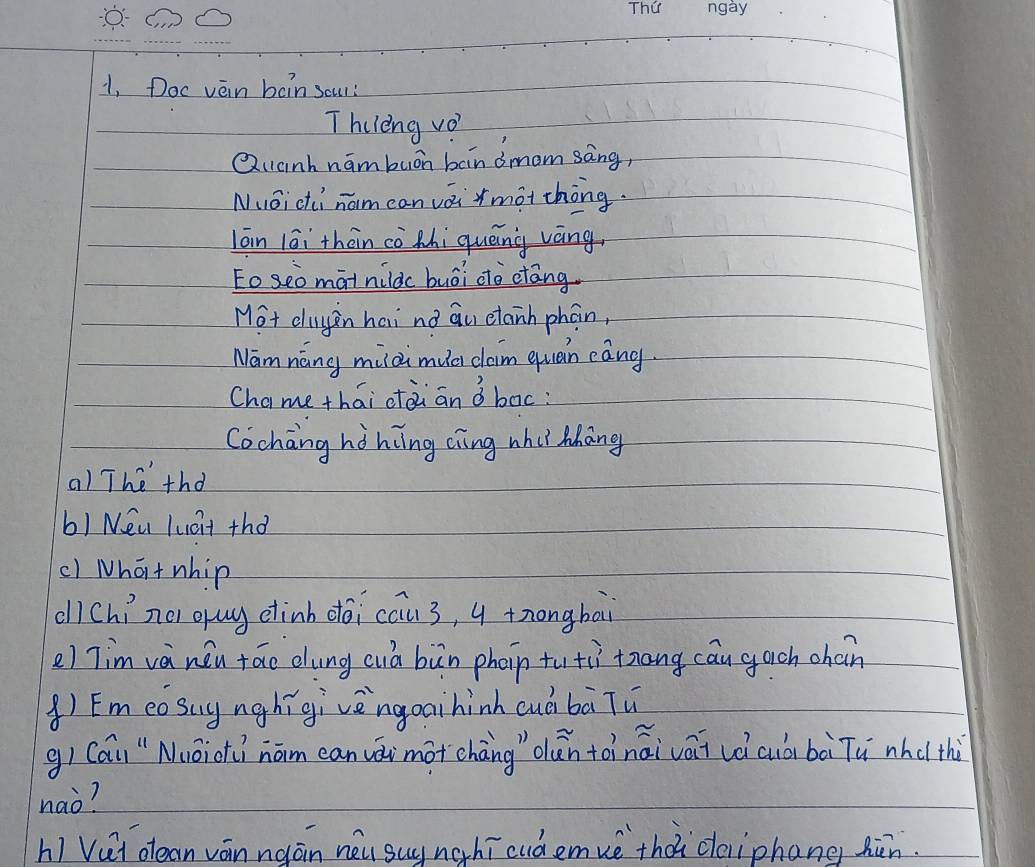 Thứ ngày
1, Đọc văn bản sau:
Thương vợ
Quanh năm buôn bán ở mom sông,
Nuôi đủ năm con với một chồng.
Lặn lội thân cò khi quãng vắng,
Eo sèo mặt nước buổi đò đông.
Một duyên hai nợ âu đành phận,
Năm nắng mười mưa dám quản công.
Cha mẹ thói đời ăn ở bạc:
Có chồng hờ hững cũng như không
a) Thể thơ
b) Nêu luật thơ
c) Nhật nhịp
d) Chỉ ra quy định đối câu 3, 4 trong bài
e) Tìm và nêu tác dụng của biện pháp tu từ trong câu gạch chân
f) Em có suy nghĩ gì về ngoại hình của bà Tú
g) Câu "Nuôi đủ năm con với một chồng" diễn tả nỗi vất vả của bà Tú như thế
nào?
h) Viết đoạn văn ngắn nêu suy nghĩ của em về thời đại phong kiến.